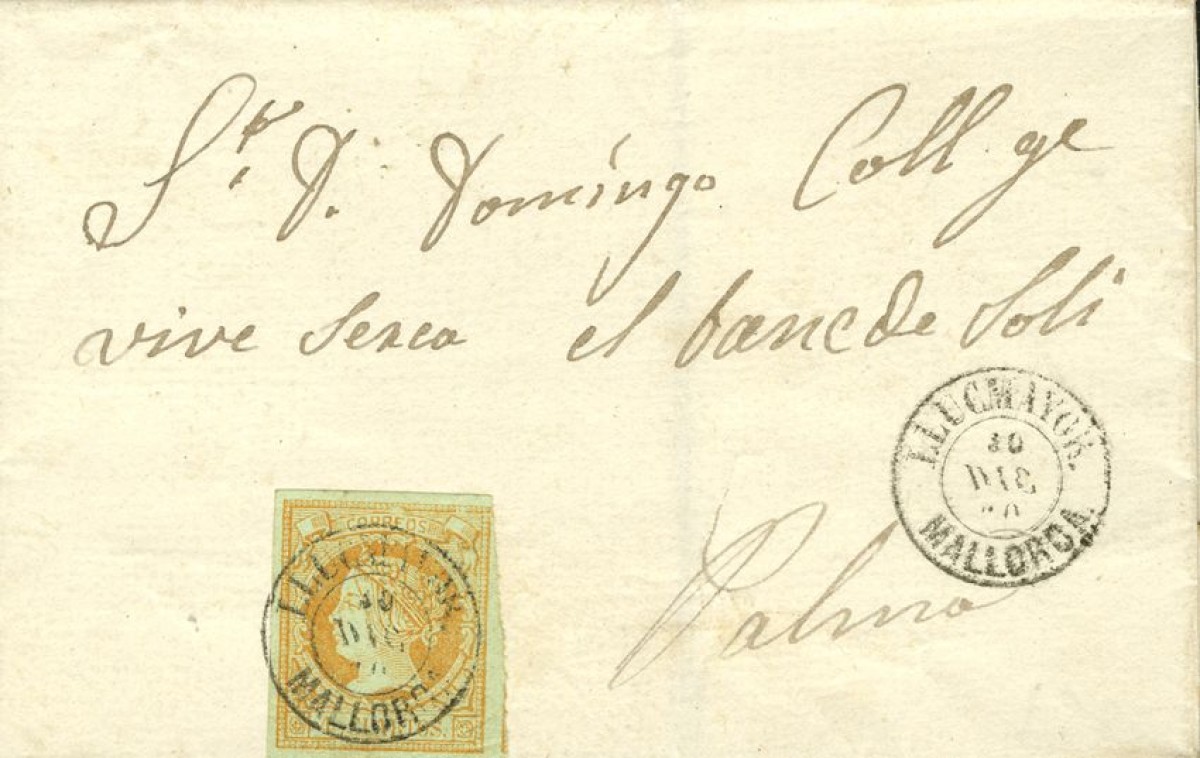 Sr. D. Domingo Coll. ge
vive serca el banc de Soli
LLUCMAYOR.
10
DIC
MALLORCA.
Palma
CORREOS
10
DIC
MALLORCA